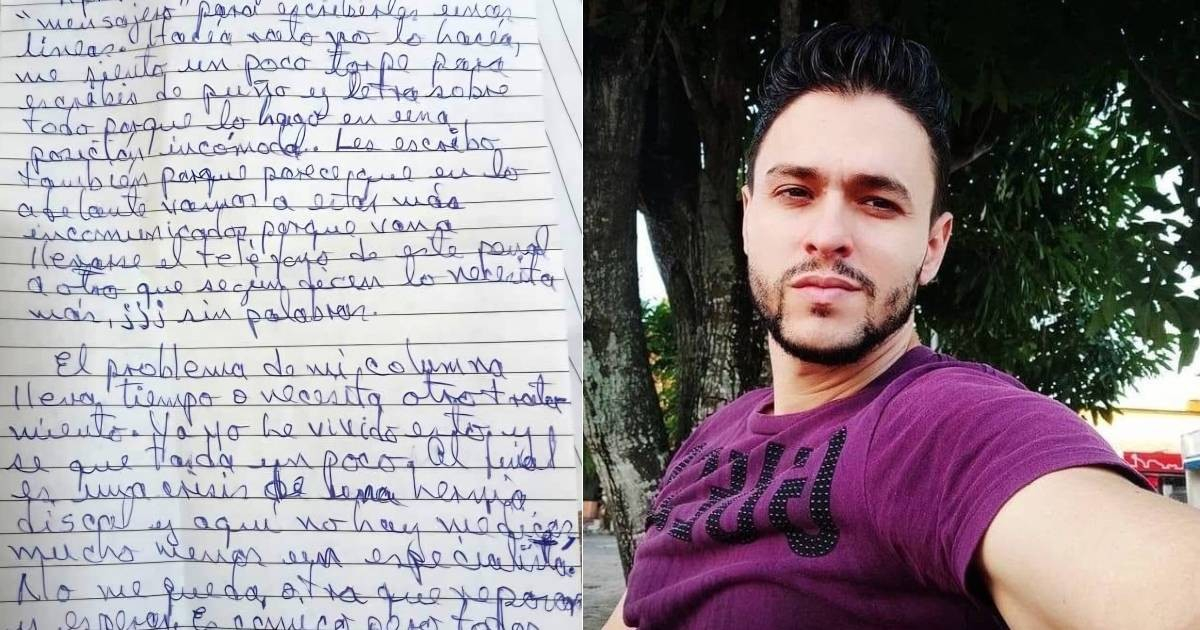 "mensajero" para escribirles unas
líneas. Hacía rato no lo hacía,
me siento un poco torpe para
escribir de puño y letra sobre
todo porque lo hago en una
posición incómoda. Les escribo
también porque parece que en lo
adelante vamos a estar más
incomunicados porque van a
llevarse el teléfono de este penal
a otro que según dicen lo necesita
más, jjj sin palabras.
El problema de mi columna
lleva tiempo o necesita otro trata-
miento. Ya yo he vivido esto y
se que tarda un poco. Al final
es una crisis de una hernia
discal y aquí no hay médicos,
mucho menos un especialista.
No me queda otra que reposar
y esperar. Es